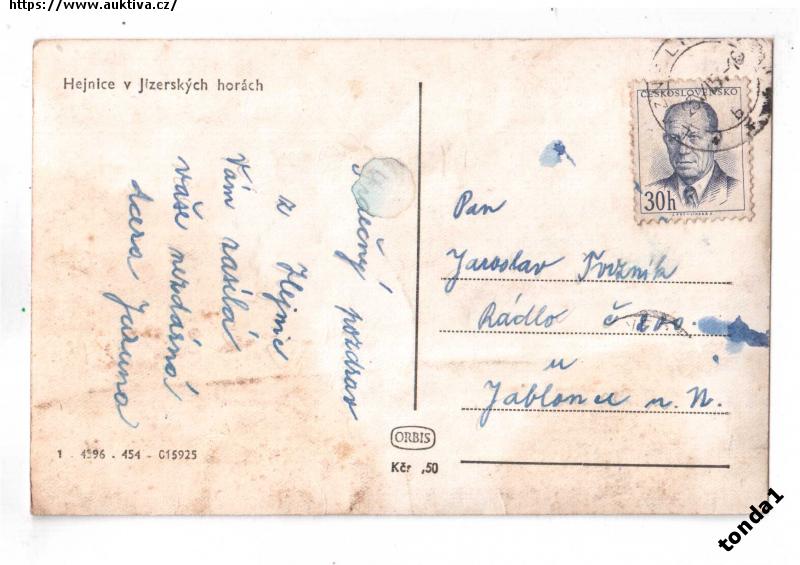 https://www.auktiva.cz/
Hejnice v Jizerských horách
ČESKOSLOVENSKO
30h
Srdečný pozdrav
z Hejnic
Vám zasílá
vaše nezdárná
dcera Jaruna
Pan
Jaroslav
Rádlo č 200
u
Jablonce n. N.
1 - 4596 - 454 - G15925
ORBIS
Kčs ,50
tonda1